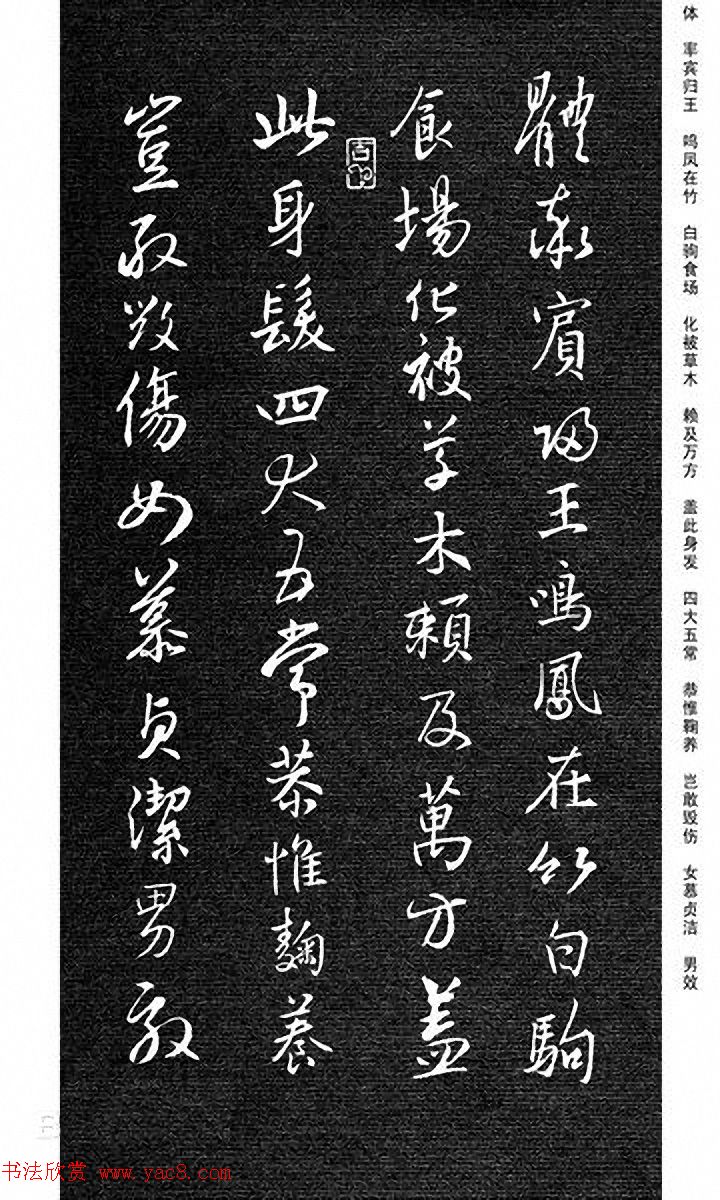 体 率宾归王 鸣凤在竹 白驹食场 化被草木 赖及万方 盖此身发 四大五常 恭惟鞠养 岂敢毁伤 女慕贞洁 男效
體率賓歸王鳴鳳在竹白駒
食場化被草木賴及萬方蓋
此身髮四大五常恭惟鞠養
豈敢毀傷女慕貞潔男效
书法欣赏 www.yac8.com